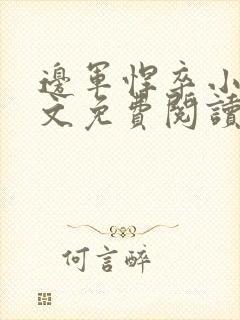 邊軍悍卒小
文免費閱讀
何言醉